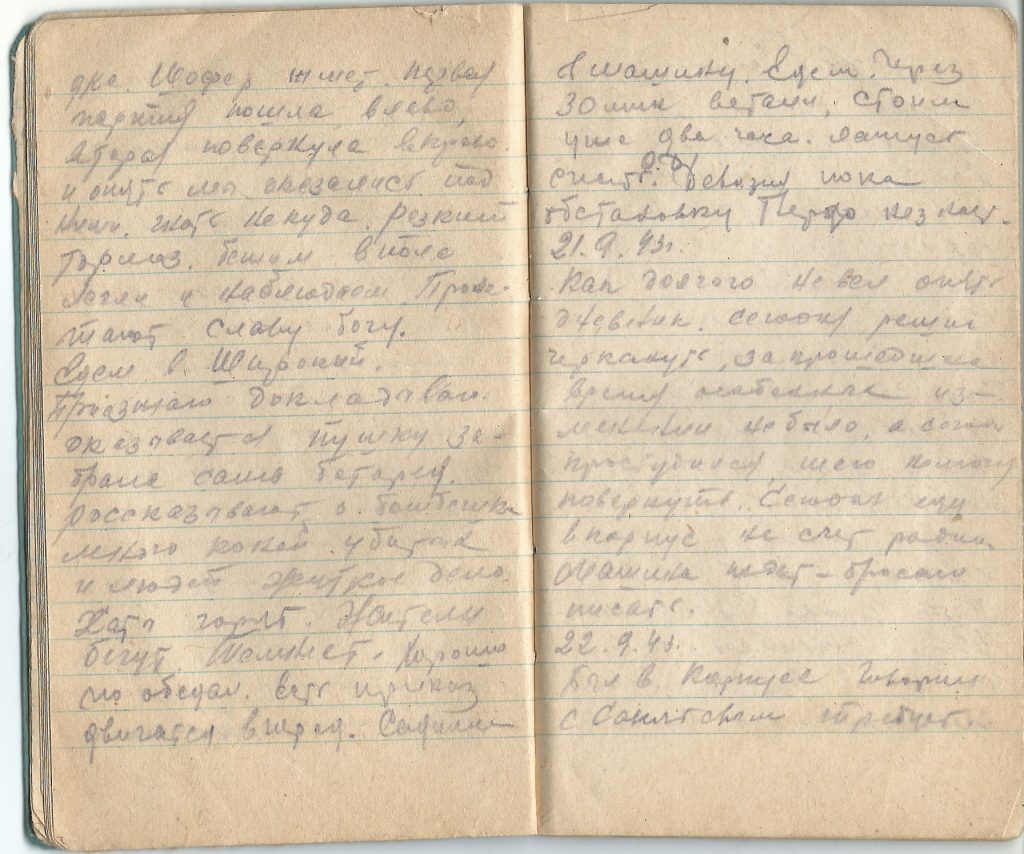 дра. Шофер жмет. первая
партия пошла влево,
вторая повернула вправо.
и опять мы оказались под
ними. жать некуда. резкий
тормаз. бежим в поле
легли и наблюдаем. Проле-
тают славу богу.
Едем в Широкий.
Приезжаю докладываю.
оказывается пушку за-
брала сама батарея.
рассказывают о бомбежке
много коней убитых
и людей жуткое дело.
Хаты горят. Жители
бегут. Темнеет. Хорошо
по обедал. есть приказ
двигатся вперед. Садимся
в машину. Едем. Через
30 мин встали, стоим
уже два часа. хочу
спать. пока
обстановку не знает.
21.9.43г.
Как долго не вел опять
дневник. сегодня решил
черкануть, за прошедшее
время особенных из-
менений не было, а сегодня
простудился, шею не могу
повернуть. Сегодня еду
в корпус на счет рации.
Машина идет - бросаю
писать.
22.9.43г.
Был в Корпусе Говорил
с